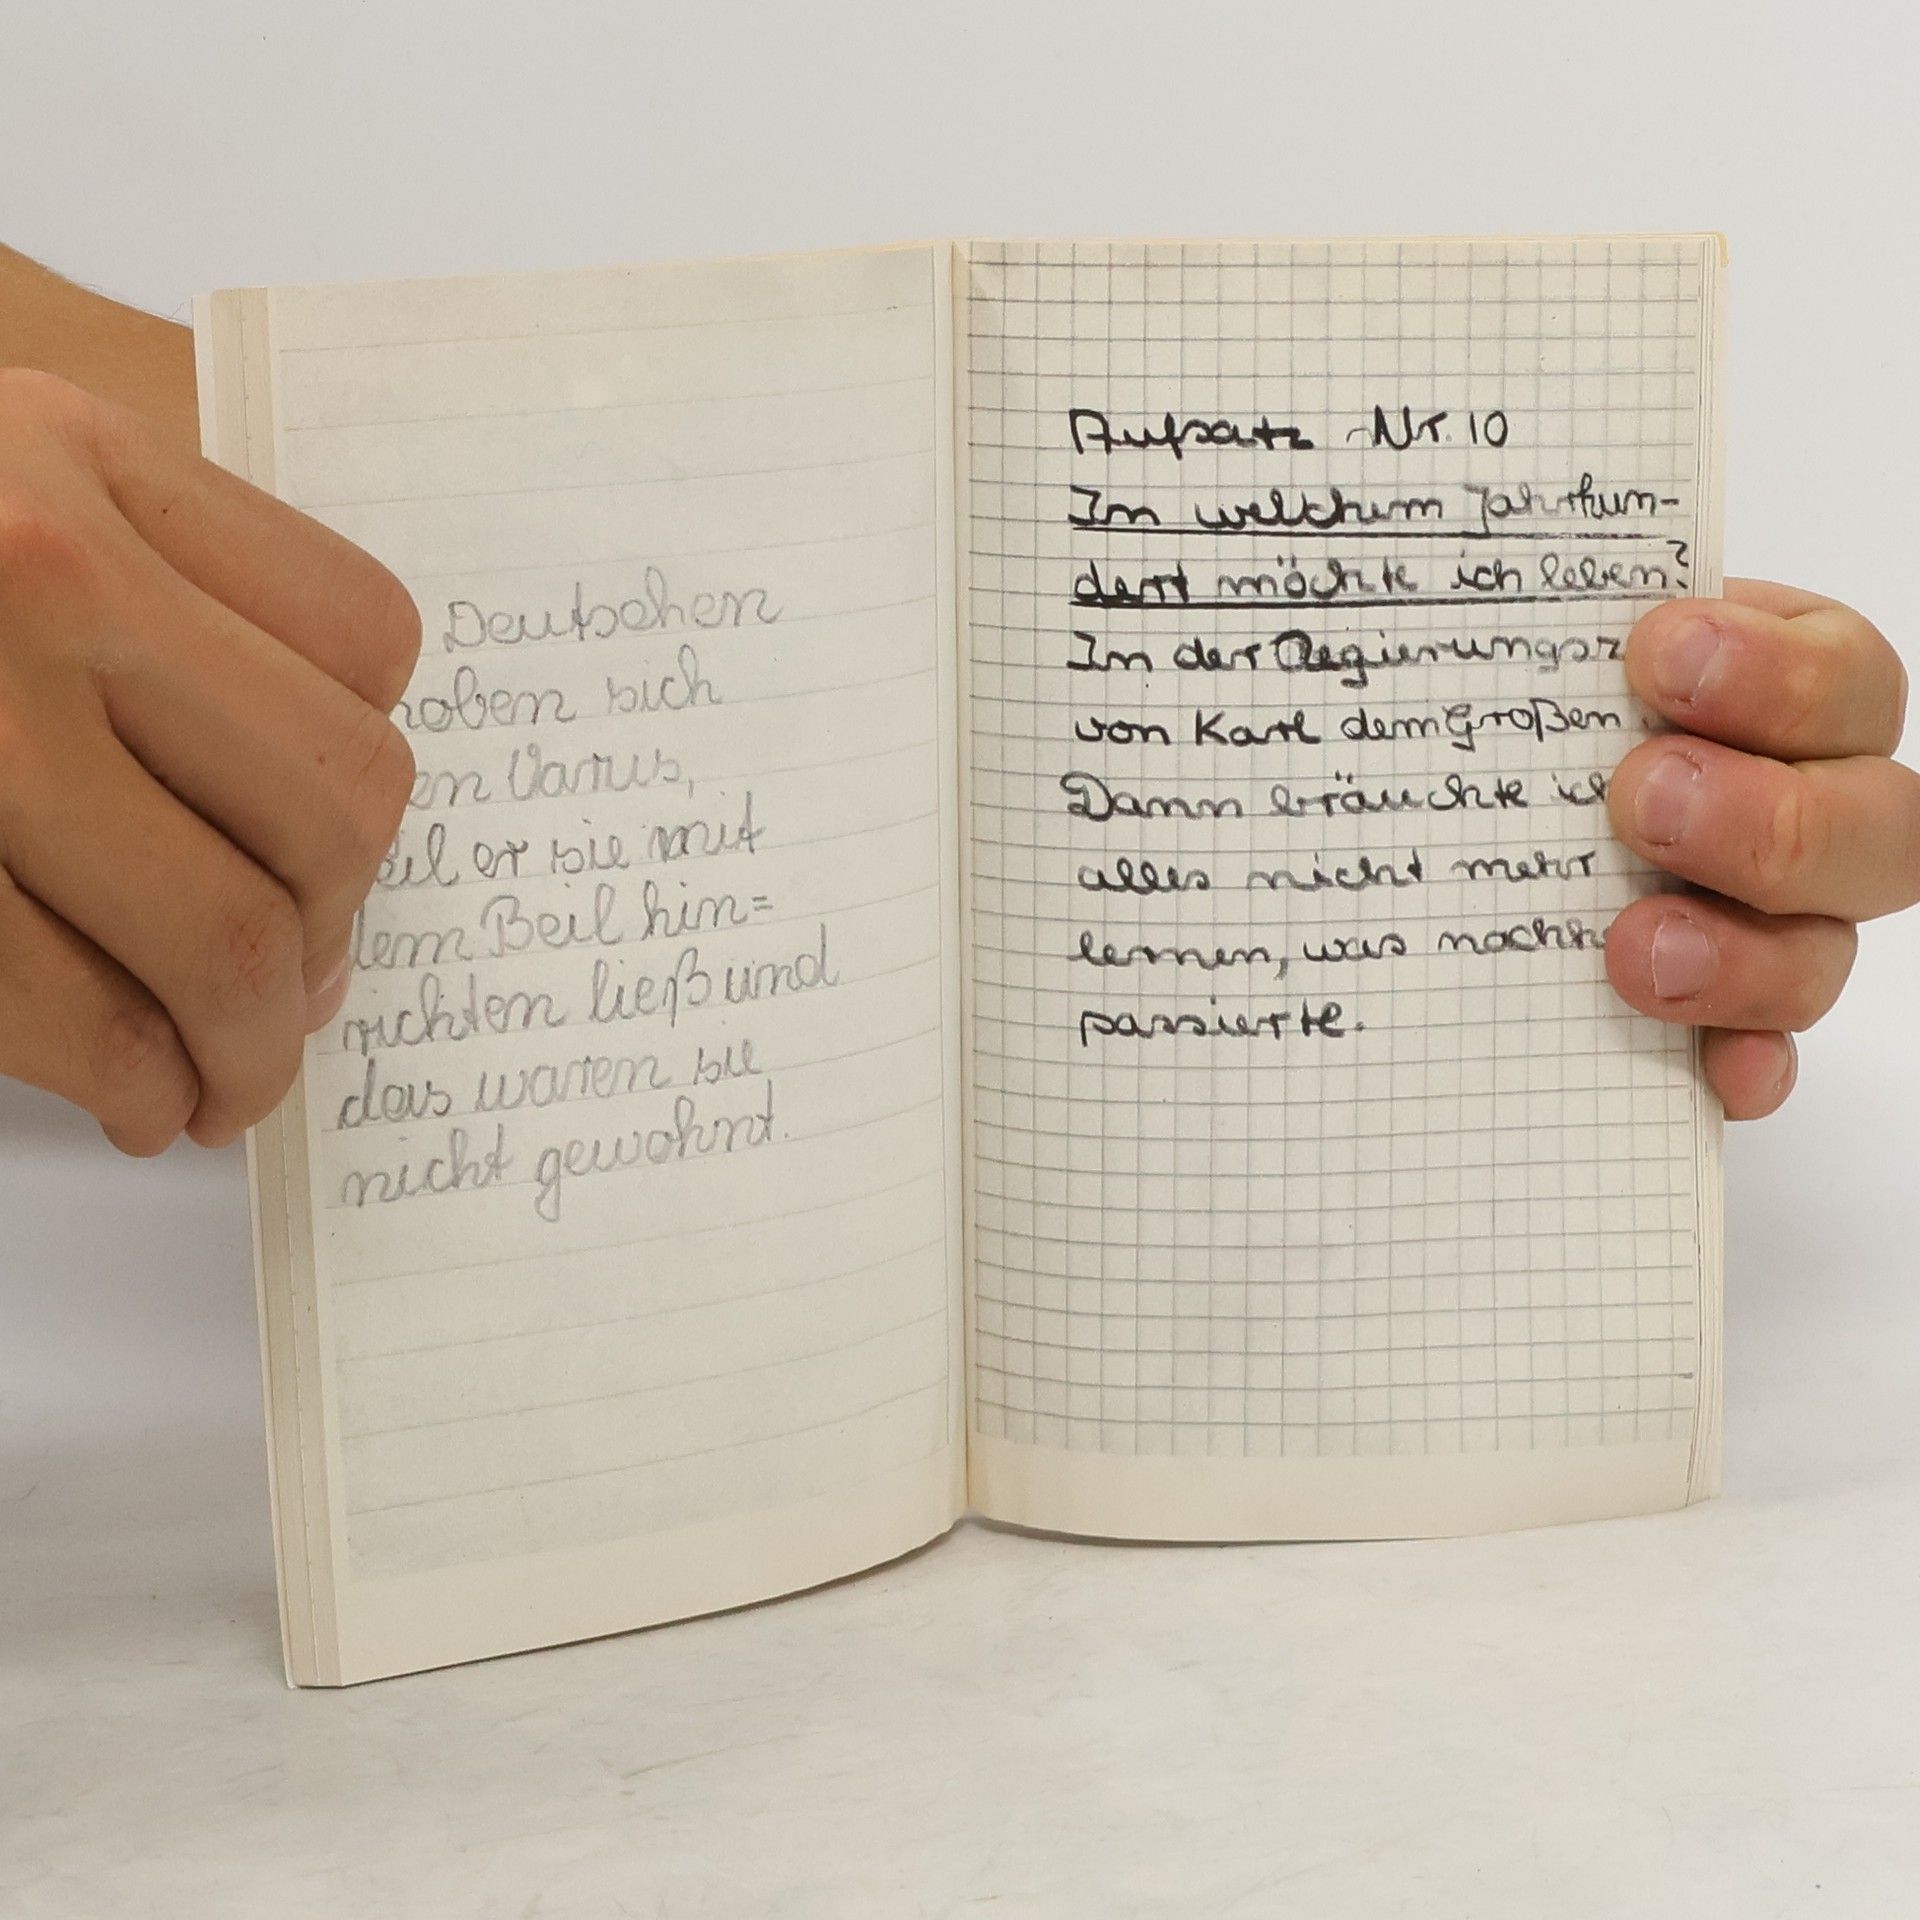 Deutschen
hoben sich
en Varus,
eil er sie mit
dem Beil hin=
richten ließ und
das waren sie
nicht gewohnt.
Aufsatz Nr. 10
In welchem Jahrhun-
dert möchte ich leben?
In der Regierungsz
von Karl dem Großen
Dann bräuchte ich
alles nicht mehr
lernen, was nachh
passierte.